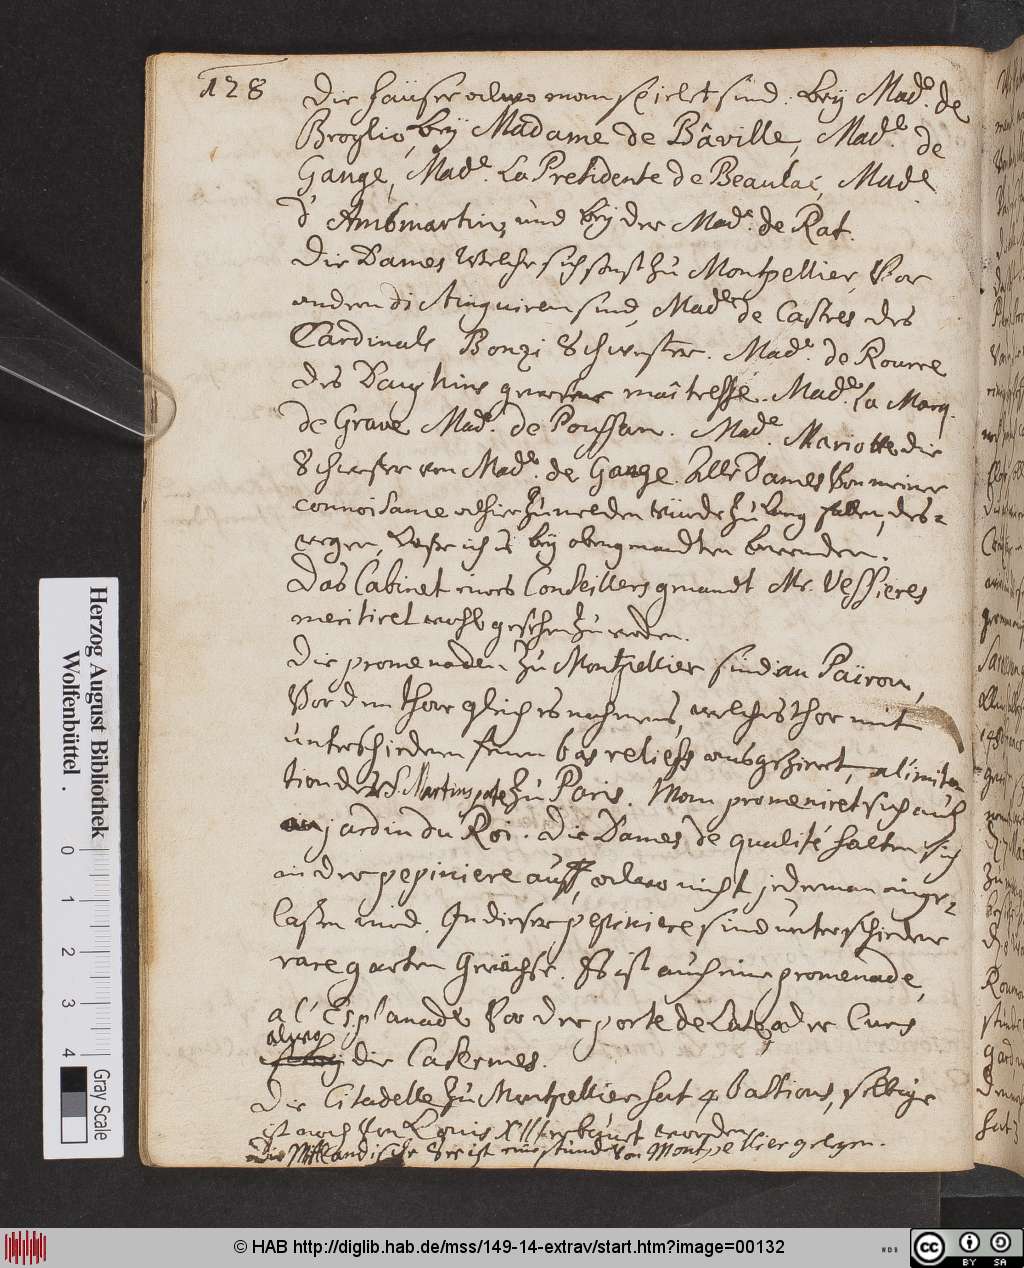 128
Die häuser alwo man spielet sind: bey Mad.e de
Broglio, bey Madame de Bâville, Mad.e de
Gange, Mad.e La Presidente de Beaulai, Mad.e
d'Ambmartin, und bey der Mad.e de Rat.
Die Dames welche sich sonst zu Montpellier, Vor
andren distinguiren sind, Mad.e de Castres des
Cardinals Bonzi Schwester. Mad.e de Rourre
des Dauphins gewesene maîtresse. Mad.e La Marq.
de Grave Mad.e de Poussan. Mad.e Mariotte die
Schwester von Mad.e de Gange. Alle Dames Von meiner
connoisance alhier zu melden würde zu lang fallen, des-
wegen, laße ich es bey obengenandten bewenden.
Das Cabinet eines Conseillers genandt Mr. Vessieres
meritiret wohl gesehen zu werden.
Die promenaden zu Montpellier sind au Päirou,
Vor dem thor gleiches nahmens, welches thor mit
unterschiedenen bas reliefs ausgezieret, a l'imita
tion der S. Martins porte zu Paris. Man promeniret sich auch
au jardin du Roi. Die Dames de qualité halten sich
in der pepiniere auff, alwo nicht jederman einge-
laßen wird. In dieser pepiniere sind unterschiedene
rare garten Gewächse. Es ist auch eine promenade,
a l'Esplanade Vor der porte de Lates oder Cours
alwo
die Casermes.
Die Citadelle zu Montpellier hat 4 bastions, selbige
ist noch Von Louis XIII erbauet worden
Die Mittlandische See ist eine stunde Von Montpellier gelegen.
Herzog August Bibliothek
Wolfenbüttel
0 1 2 3 4
Gray Scale
© HAB http://diglib.hab.de/mss/149-14-extrav/start.htm?image=00132
WDB
cc BY SA